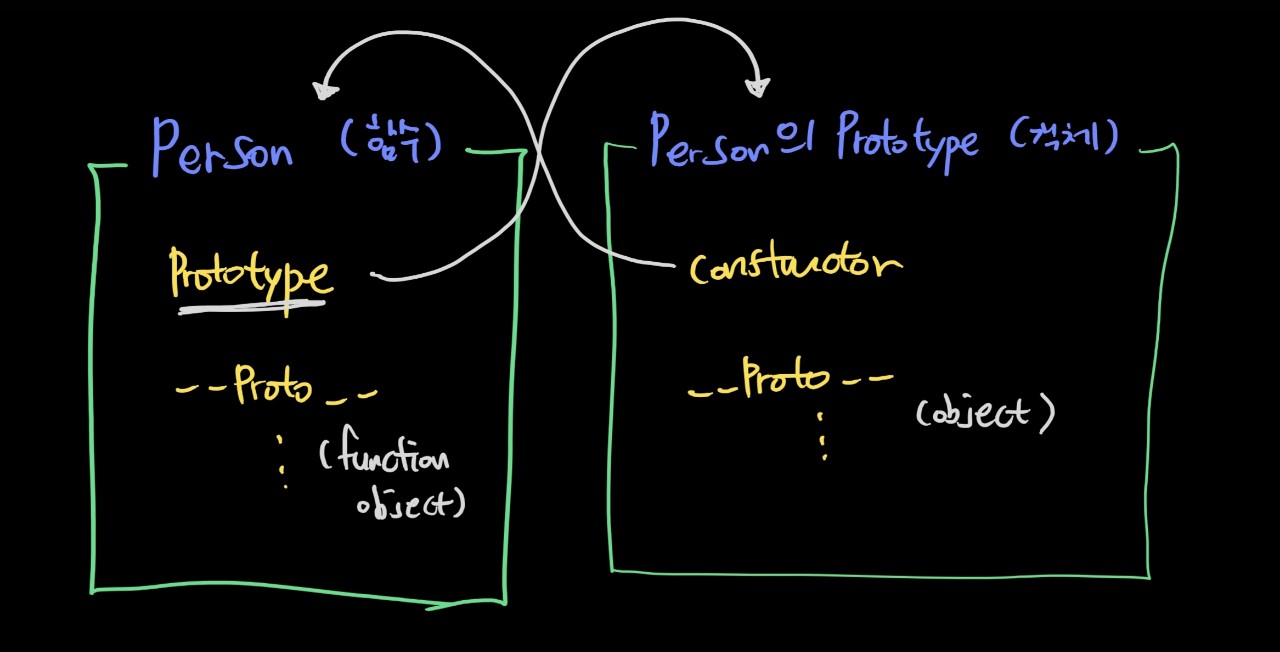 Person (함수)
Prototype
--Proto--
(function
object)
Person의 Prototype (객체)
constructor
--Proto--
(object)